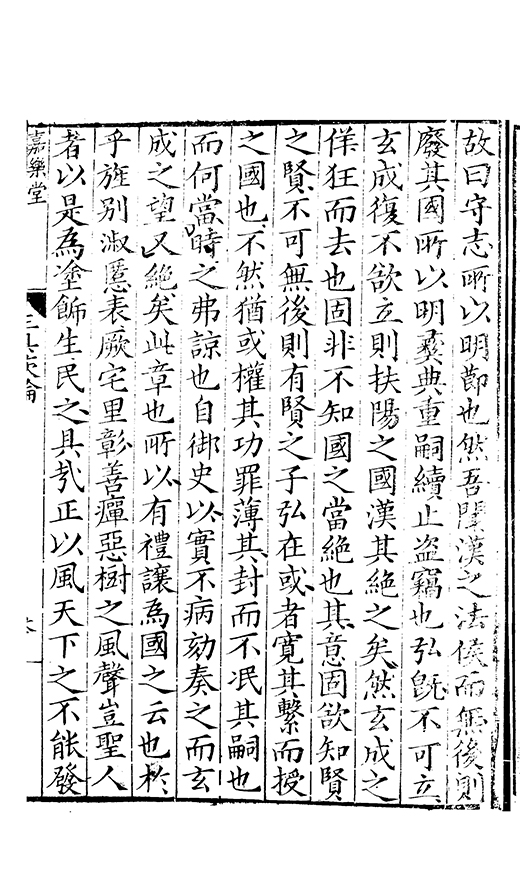 故曰守志所以明節也然吾聞漢之法侯而無後則
廢其國所以明彝典重嗣續止盗竊也弘既不可立
玄成復不欲立則扶陽之國漢其絶之矣然玄成之
佯狂而去也固非不知國之當絶也其意固欲知賢
之賢不可無後則有賢之子弘在或者寛其繫而授
之國也不然猶或權其功罪薄其封而不冺其嗣也
而何當時之弗諒也自御史以實不病劾奏之而玄
成之望又絶矣此章也所以有禮讓為國之云也於
乎旌别淑慝表厥宅里彰善癉惡樹之風聲豈聖人
者以是為塗飾生民之具㦲正以風天下之不能發
嘉樂堂